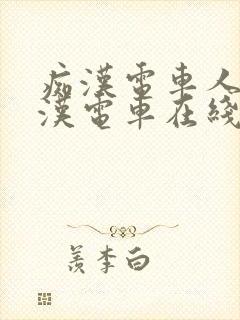 痴漢電車人
漢電車在綫
羨李白